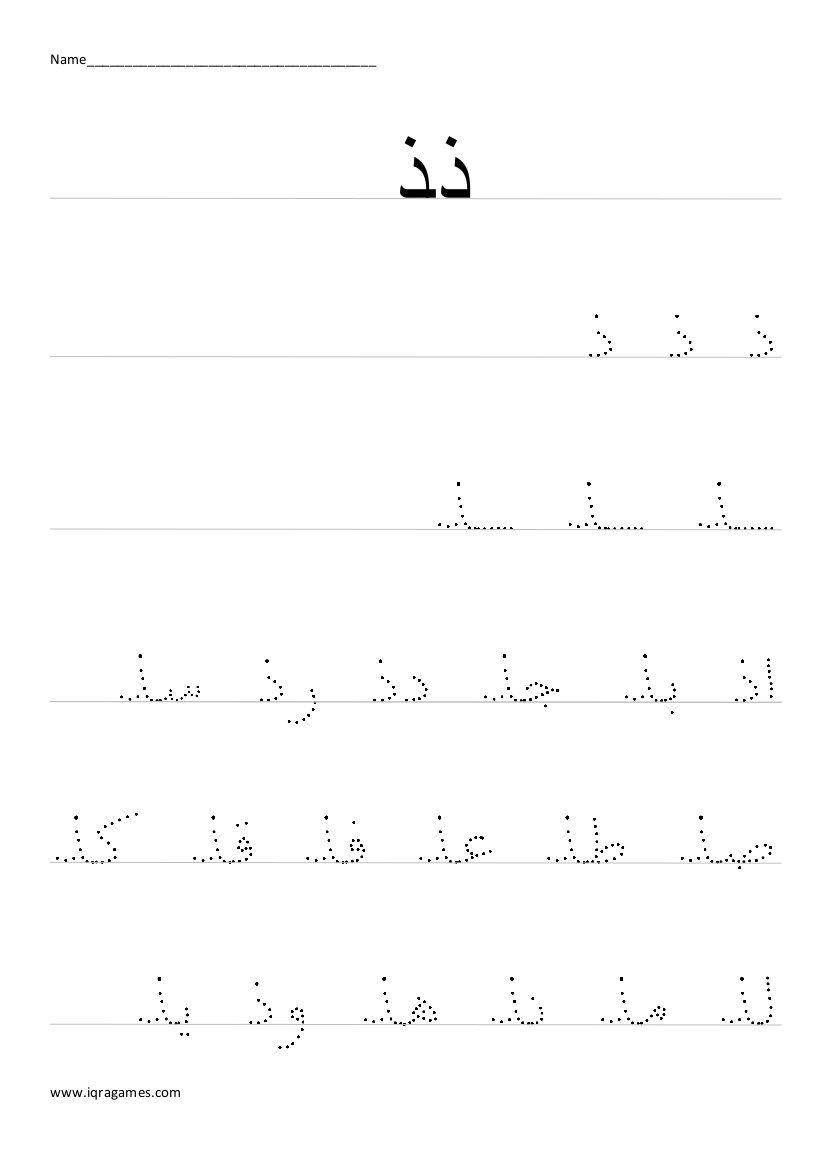 Name____________________________________
ذ ـذ
ذ ذ ذ
ـذ ـذ ـذ
اذ بذ جذ دذ رذ سذ
صذ طذ عذ فذ قذ كذ
لذ مذ نذ هذ وذ يذ
www.iqragames.com